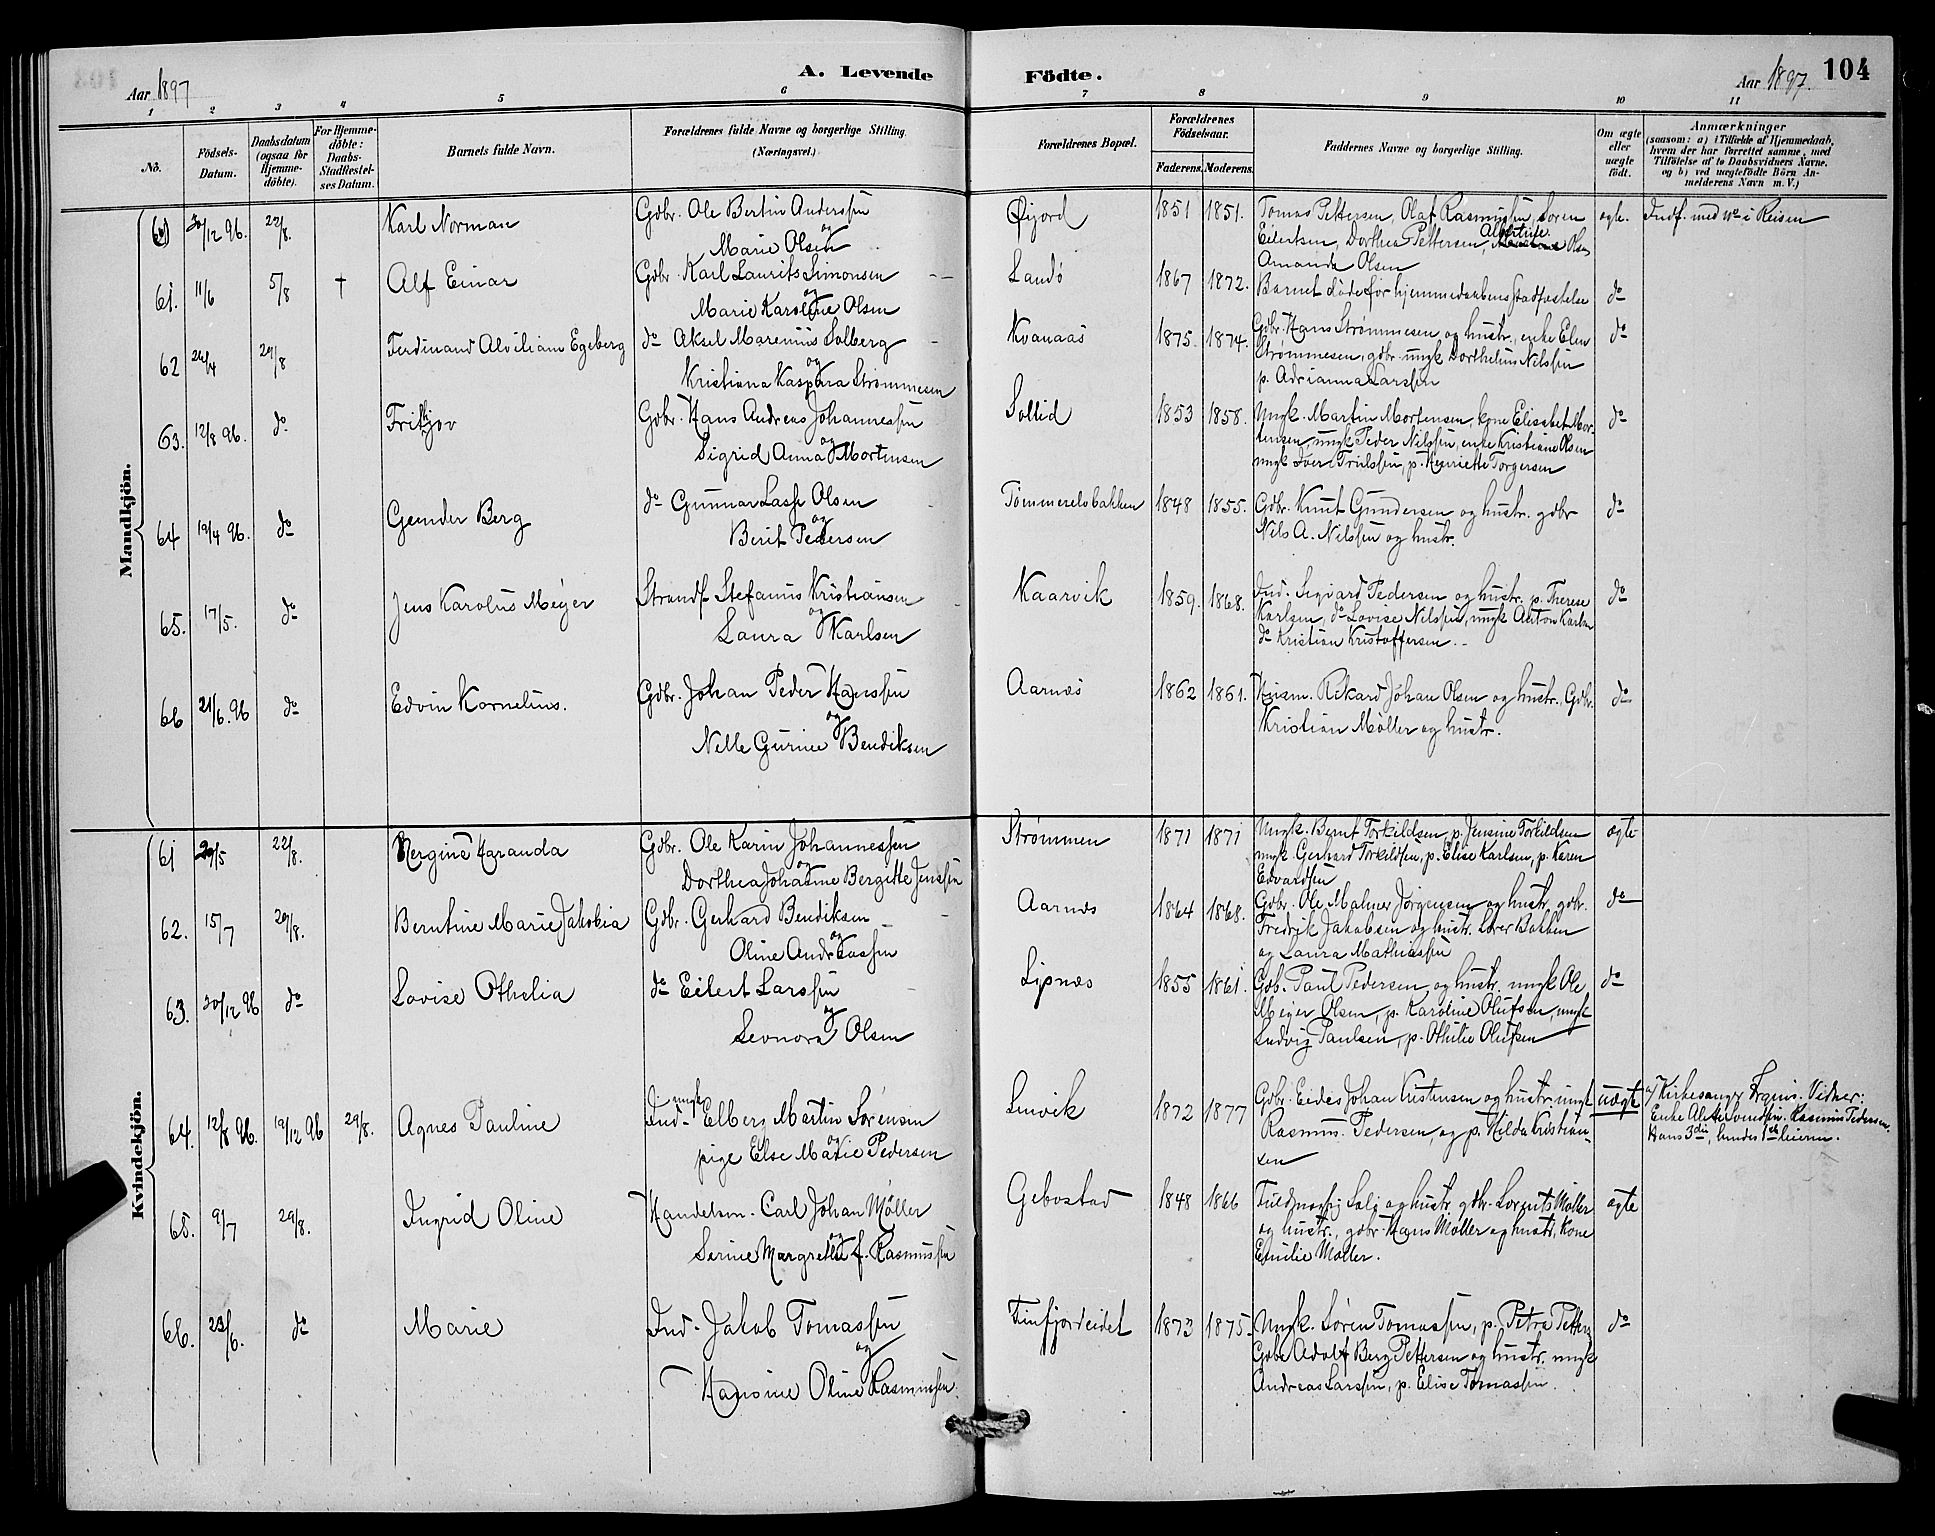 Aar 1897
A. Levende
Födte.
Aar 1897.
104
1 2 3 4 5 6 7 8 9 10 11
No.
Födsels-Datum.
Daabsdatum (ogsaa for Hjemme-döbte).
For Hjemme-döbte: Daabs-Stadfæstel-ses Datum.
Barnets fulde Navn.
Forældrenes fulde Navne og borgerlige Stilling. (Næringsvei.)
Forældrenes Bopæl.
Forældrenes Födselsaar.
Faderens. Moderens.
Faddernes Navne og borgerlige Stilling.
Om ægte eller uægte födt.
Anmærkninger
(saasom: a) i Tilfælde af Hjemmedaab,
hvem der har forrettet samme, med
Tilföielse af to Daabsvidners Navne,
og b) ved uægtefödte Börn An-
melderens Navn m. V.)
Mandkjön.
60 30/12 96. 22/8. Karl Norman
Gdbr. Ole Bertin Anderssen
og
Marie Olsen
Øijord 1851 1851.
Tomas Pettersen, Olaf Rasmussen, Søren
Eilertsen, Dorthea Pettersen, Albertine Olsen
Amanda Olsen
ægte. Indf. med No i Reisen
61. 11/6 5/8 † Alf Einar
Gdbr. Karl Laurits Simonsen
og
Marie Karoline Olsen
Sandø 1867 1872.
Barnet døde før hjemmedaabens stadfæstelse
do
62 24/4 29/8 Ferdinand Alviliam Egeberg
do Aksel Marenius Solberg
og
Kristiana Kaspara Strømmesen
Kvanaas 1875. 1874.
Gdbr. Hans Strømmesen og hustr., enke Elen
Strømmesen, gdbr. ungk. Dorthelius Nilssen
p. Adrianna Larssen
do
63. 12/8 96. do Fritjov
Gdbr. Hans Andreas Johannessen
og
Sigrid Anna Mortensen
Sollid 1853 1858.
Ungk. Martin Mortensen, kone Elisabet Mor-
tensen, ungk. Peder Nilssen, enke Kristiane Olsen
ungk. Iver Trulssen, p. Henriette Torgersen
do
64 19/4 96. do Gemder Berg
do Gunnar Lasse Olsen
og
Berit Pedersen
Tømmerelvbakken 1848 1855.
Gdbr. Knut Gundersen og hustr. gdbr
Nils A. Nilssen og hustr.
do
65. 17/5. do Jens Karolus Meyer
Strands. Stefanus Kristiansen
og
Laura Karlsen
Kaarvik 1859. 1868.
Ind. Sigvard Pedersen og hustr. p. Therese
Karlsen, do Lovise Nilssen, ungk Anton Karlsen
do Kristian Kristoffersen.
do
66 21/6. 96 do Edvin Kornelius.
Gdbr. Johan Peder Hanssen
og
Nelle Gurine Bendiksen
Aarnes 1862 1861.
Husm. Rikard Johan Olsen og hustr. Gdbr.
Kristian Møller og hustr.
do
Kvindekjön.
61 29/5 22/8. Nergine Haranda
Gdbr. Ole Karin Johannessen
og
Dorthea Johanne Bergitte Jenssen
Strømmen 1871 1871
Ungk. Bernt Torkildsen, p. Jensine Torkildsen
ungk. Gerhard Torkildsen, p. Elise Karlsen, p. Karen
Edvardsen
ægte
62. 15/7 29/8. Berntine Marie Jakobia
Gdbr. Gerhard Bendiksen
og
Oline Andreassen
Aarnes 1864 1868.
Gdbr. Ole Malmer Jørgensen og hustr. gdbr.
Fredrik Jakobsen og hustr. Lærer Bakken
og Laura Mathiassen
do
63. 30/12 96 do Lovise Othelia
do Eilert Larssen
og
Leonora Olsen
Lysnes 1855 1861.
Gdb. Paul Pedersen og hustr. ungk Ole
Meyer Olsen, p. Karoline Olufsen, ungk
Ludvig Paulsen, p. Othilie Olufsen
do
64. 12/8 96. 19/12 96 29/8. Agnes Pauline
ungk
Ind. Elberg Martin Sørensen
og
pige Else Marie Pedersen
Lenvik 1872 1877
Gdbr. Eides Johan Kristensen og hustr. ungk
Rasmus Pedersen, og p. Hilda Kristian-
sen
uægte
a) Kirkesanger Vidner:
Enke Rasmus Pedersen.
Hans 3die, hendes 1ste leierm.
65. 9/7 29/8. Ingrid Oline
Handelsm. Carl Johan Møller
og
Serine Margrethe f. Rasmussen
Gebostad 1848 1866
Fuldmægtig Salg og hustr. gdbr. Lorents Møller
og hustr., gdbr. Hans Møller og hustr, kone
Emilie Møller.
ægte
66. 23/6. do Marie
Ind. Jakob Tomassen
og
Hansine Oline Rasmussen.
Finfjordeidet 1873 1875.
Ungk. Søren Tomassen, p. Petra Petters
Gdbr. Adolf Berg Pettersen og hustr. ungk
Andreas Larssen, p. Elise Tomassen.
do